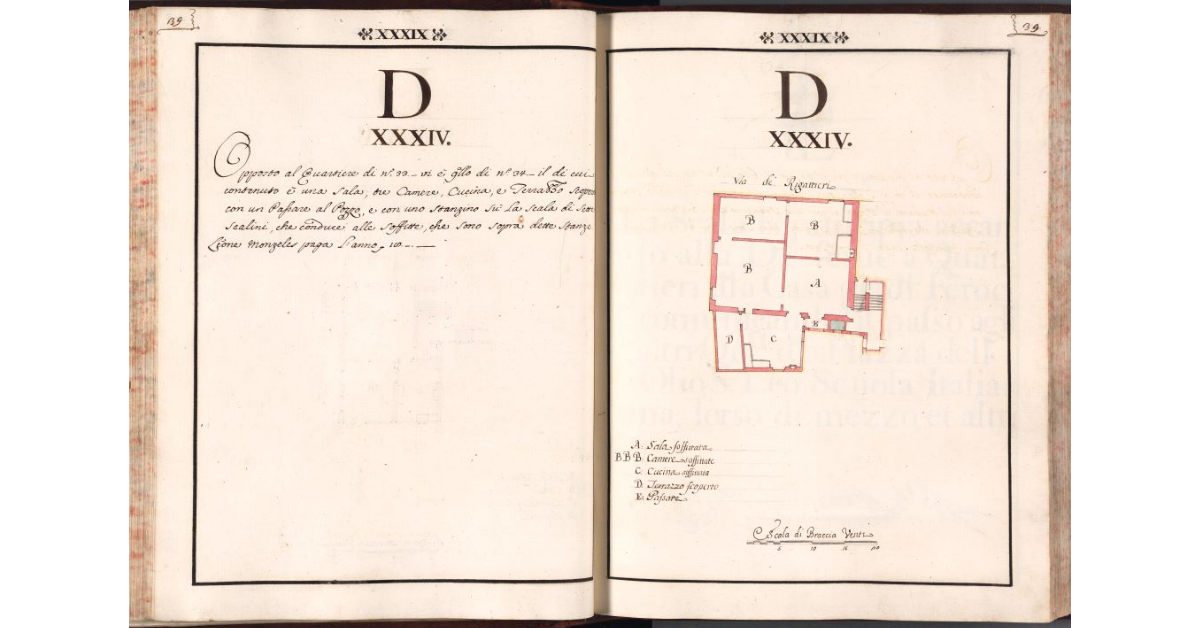 39
XXXIX
D
XXXIV.
Opposto al Quartiere di nº. 33. vi è qllo di nº. 34. il di cui
contenuto è una Sala, tre Camere, Cucina, e Terrazzo Scopto
con un Passare al Pozzo, e con uno Stanzino sù la Scala di Sette
Scalini, che conduce alle Soffitte, che sono sopra dette Stanze
Lione Monzeles paga l'anno 10.
39
XXXIX
D
XXXIV.
Via de' Rigattieri
B
B
B
A
E
D
C
A. Sala soffittata
B.B.B. Camere soffittate
C. Cucina soffittata
D. Terrazzo scoperto
E. Passare
Scala di Braccia Venti
5 10 15 20